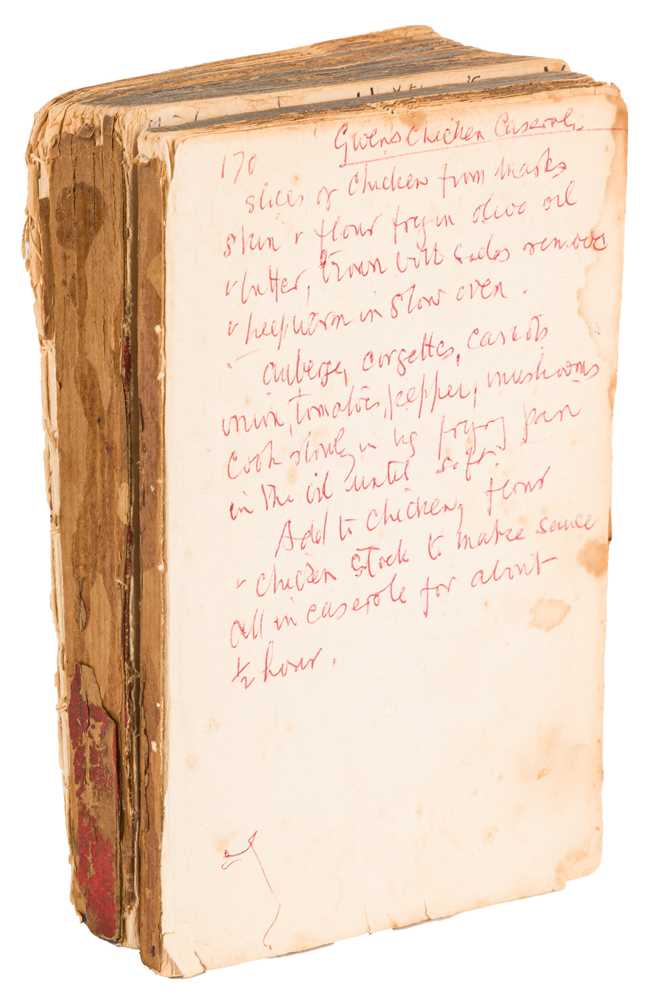 170 Gwens Chicken Caserole
slices of chicken from Marks
skin & flour fry in olive oil
& butter, brown both sides remove
& keep warm in slow oven.
auberge, corgettes, carrots
onion, tomatoes, pepper, mushrooms
Cook slowly in big frying pan
in the oil until soft.
Add to chicken, flour
& chicken stock to make sauce
all in caserole for about
½ hour.